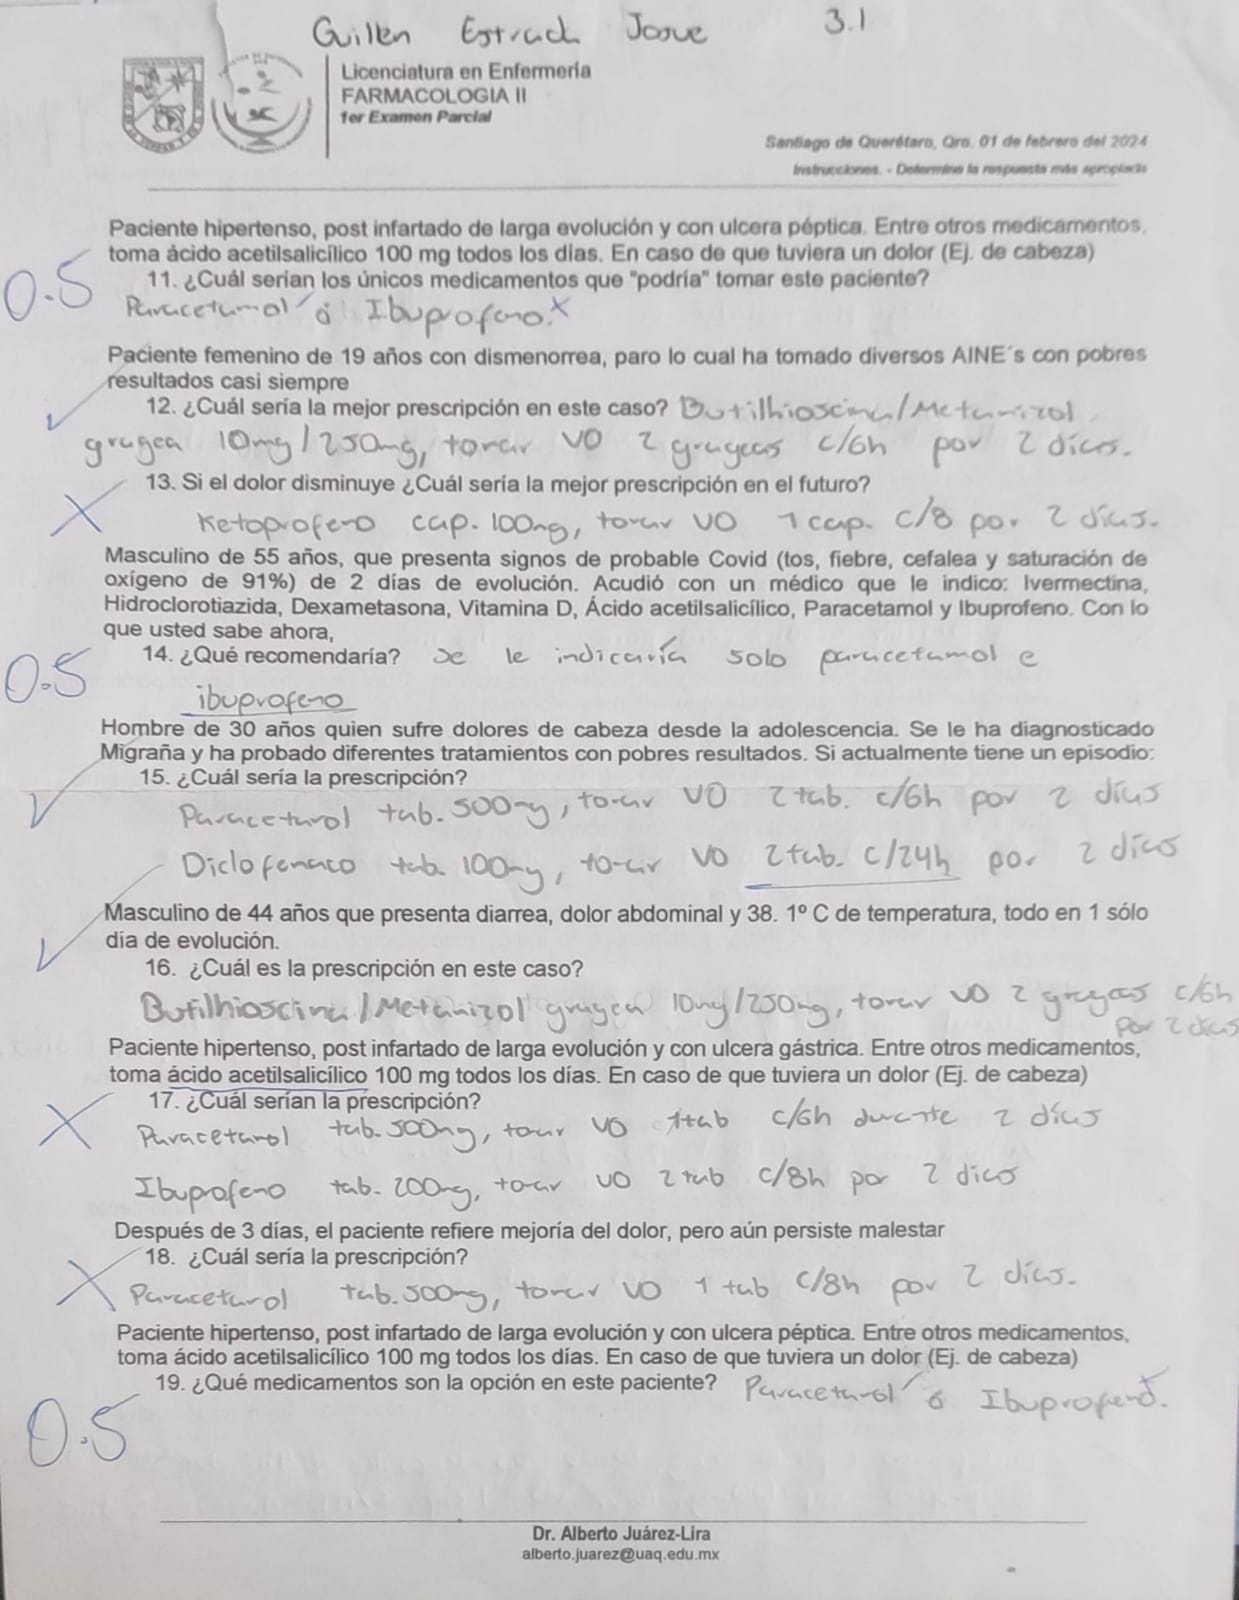 Guillen Estrada Josue 3.1
Licenciatura en Enfermería
FARMACOLOGIA II
1er Examen Parcial
Santiago de Querétaro, Qro. 01 de febrero del 2024
Instrucciones. - Determine la respuesta más apropiada
Paciente hipertenso, post infartado de larga evolución y con ulcera péptica. Entre otros medicamentos,
toma ácido acetilsalicílico 100 mg todos los días. En caso de que tuviera un dolor (Ej. de cabeza)
0.5 11. ¿Cuál serían los únicos medicamentos que "podría" tomar este paciente?
Paracetamol ó Ibuprofeno.
Paciente femenino de 19 años con dismenorrea, paro lo cual ha tomado diversos AINE´s con pobres
resultados casi siempre
12. ¿Cuál sería la mejor prescripción en este caso? Butilhioscina/Metamizol
gragea 10mg/250mg, tomar VO 2 grageas c/6h por 2 días.
13. Si el dolor disminuye ¿Cuál sería la mejor prescripción en el futuro?
Ketoprofeno cap. 100mg, tomar VO 1 cap. c/8 por 2 días.
Masculino de 55 años, que presenta signos de probable Covid (tos, fiebre, cefalea y saturación de
oxígeno de 91%) de 2 días de evolución. Acudió con un médico que le indico: Ivermectina,
Hidroclorotiazida, Dexametasona, Vitamina D, Ácido acetilsalicílico, Paracetamol y Ibuprofeno. Con lo
que usted sabe ahora,
0.5 14. ¿Qué recomendaría? Se le indicaría solo paracetamol e
ibuprofeno
Hombre de 30 años quien sufre dolores de cabeza desde la adolescencia. Se le ha diagnosticado
Migraña y ha probado diferentes tratamientos con pobres resultados. Si actualmente tiene un episodio:
15. ¿Cuál sería la prescripción?
Paracetamol tab. 500mg, tomar VO 2 tab. c/6h por 2 días
Diclofenaco tab. 100mg, tomar VO 2 tab. c/24h por 2 días
Masculino de 44 años que presenta diarrea, dolor abdominal y 38. 1º C de temperatura, todo en 1 sólo
día de evolución.
16. ¿Cuál es la prescripción en este caso?
Butilhioscina/Metamizol gragea 10mg/250mg, tomar VO 2 grageas c/6h
por 2 días
Paciente hipertenso, post infartado de larga evolución y con ulcera gástrica. Entre otros medicamentos,
toma ácido acetilsalicílico 100 mg todos los días. En caso de que tuviera un dolor (Ej. de cabeza)
17. ¿Cuál serían la prescripción?
Paracetamol tab. 500mg, tomar VO 1tab c/6h durante 2 días
Ibuprofeno tab. 200mg, tomar VO 2 tab c/8h por 2 días
Después de 3 días, el paciente refiere mejoría del dolor, pero aún persiste malestar
18. ¿Cuál sería la prescripción?
Paracetamol tab. 500mg, tomar VO 1 tab c/8h por 2 días.
Paciente hipertenso, post infartado de larga evolución y con ulcera péptica. Entre otros medicamentos,
toma ácido acetilsalicílico 100 mg todos los días. En caso de que tuviera un dolor (Ej. de cabeza)
19. ¿Qué medicamentos son la opción en este paciente? Paracetamol ó Ibuprofeno.
0.5
Dr. Alberto Juárez-Lira
alberto.juarez@uaq.edu.mx